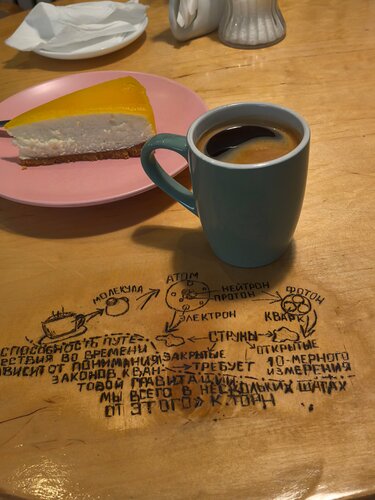 АТОМ
МОЛЕКУЛА
НЕЙТРОН
ПРОТОН
ФОТОН
ЭЛЕКТРОН
КВАРК
СТРУНЫ
СПОСОБНОСТЬ ПУТЕ-
ЗАКРЫТЫЕ
ОТКРЫТЫЕ
ЕСТВИЯ ВО ВРЕМЕНИ
ВИСИТ ОТ ПОНИМАНИЯ
ТРЕБУЕТ
10-МЕРНОГО
ЗАКОНОВ КВАН-
ИЗМЕРЕНИЯ
ТОВОЙ ГРАВИТАЦИИ
МЫ ВСЕГО В НЕСКОЛЬКИХ ШАГАХ
ОТ ЭТОГО» К. ТОРН